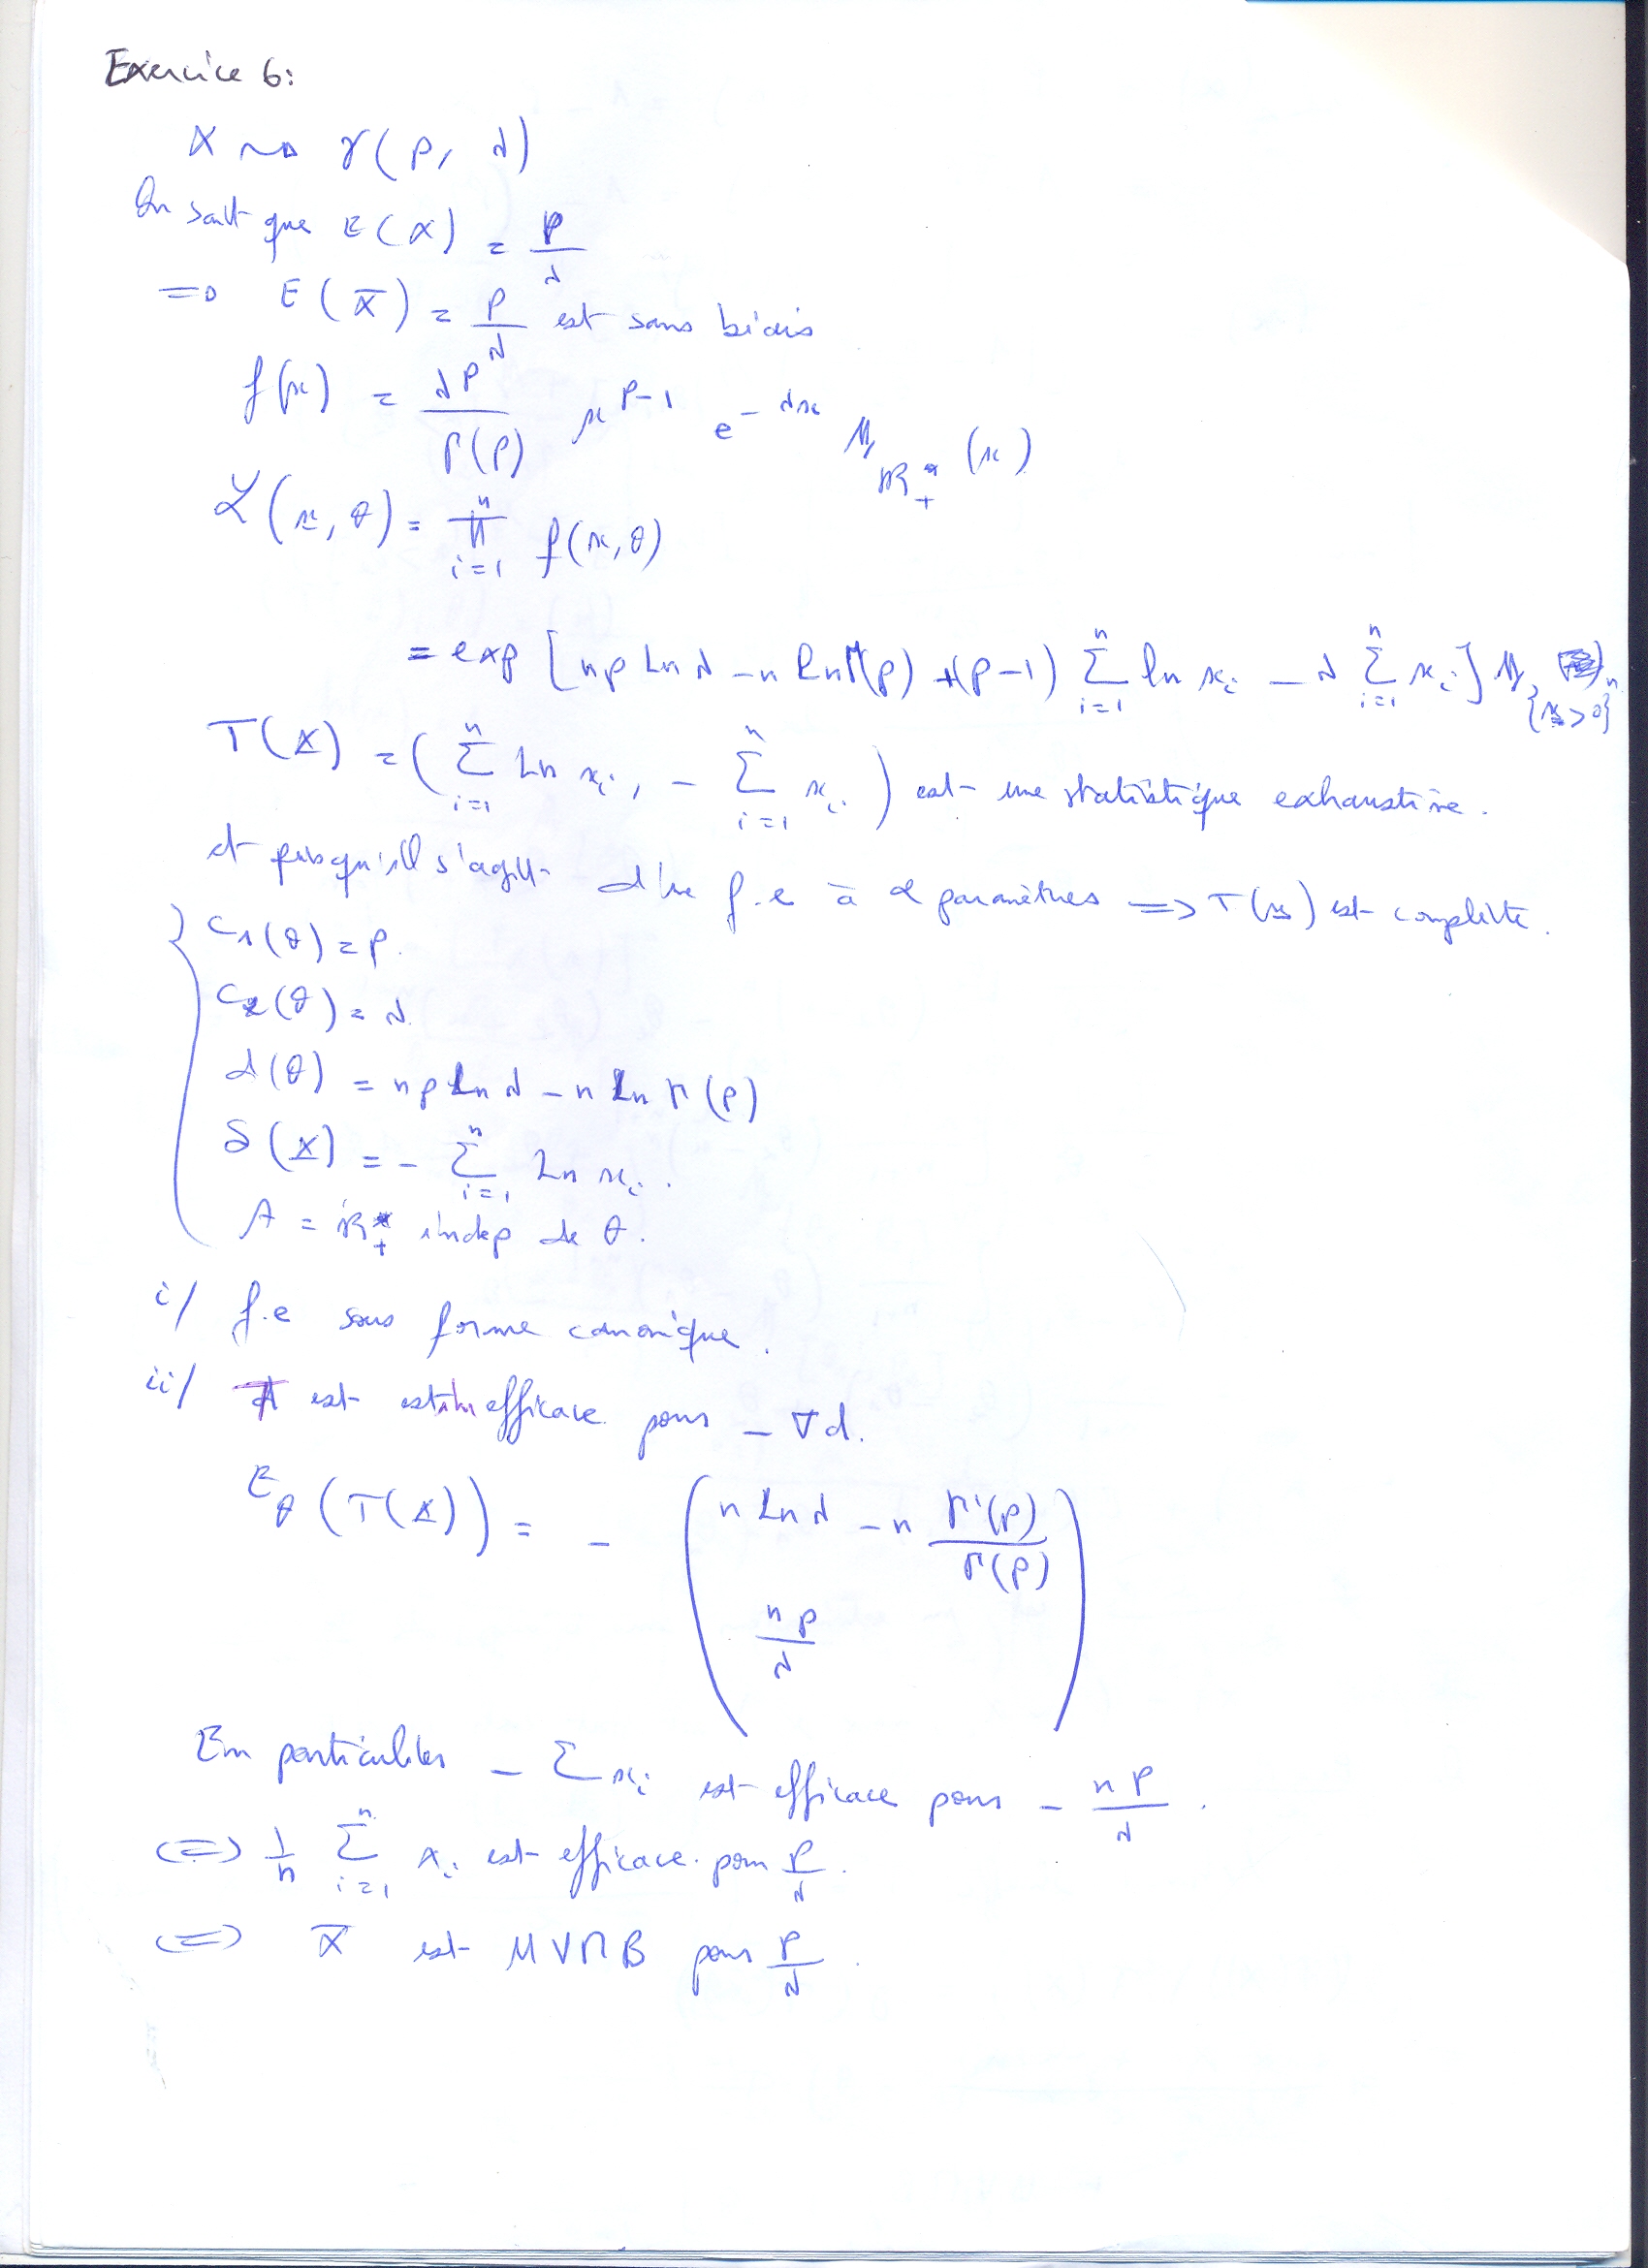 Exercice 6:
X ~> γ(p, λ)
On sait que E(X) = p/λ
=> E(X̄) = p/λ est sans biais
f(x) = λ^p / Γ(p) x^(p-1) e^(-λx) 𝟙_{ℝ₊*}(x)
ℒ(x, θ) = ∏_{i=1}^{n} f(x, θ)
= exp [np Ln λ - n Ln Γ(p) + (p-1) ∑_{i=1}^{n} ln xᵢ - λ ∑_{i=1}^{n} xᵢ] 𝟙_{x>0}ⁿ
T(X) = (∑_{i=1}^{n} Ln xᵢ, - ∑_{i=1}^{n} xᵢ) est une statistique exhaustive.
et puisqu'il s'agit d'une f.e à 2 paramètres => T(x) est complète.
{ C₁(θ) = p.
C₂(θ) = λ
d(θ) = np Ln λ - n Ln Γ(p)
S(X) = - ∑_{i=1}^{n} Ln xᵢ.
A = ℝ₊* indep de θ.
i/ f.e sous forme canonique.
ii/ T est estim efficace pour - ∇d.
E_θ(T(X)) = - ( n Ln λ - n Γ'(p)/Γ(p)
np/λ )
En particulier - ∑xᵢ est efficace pour - np/λ.
<=> 1/n ∑_{i=1}^{n} xᵢ est efficace pour p/λ.
<=> X̄ est MVUB pour p/λ.